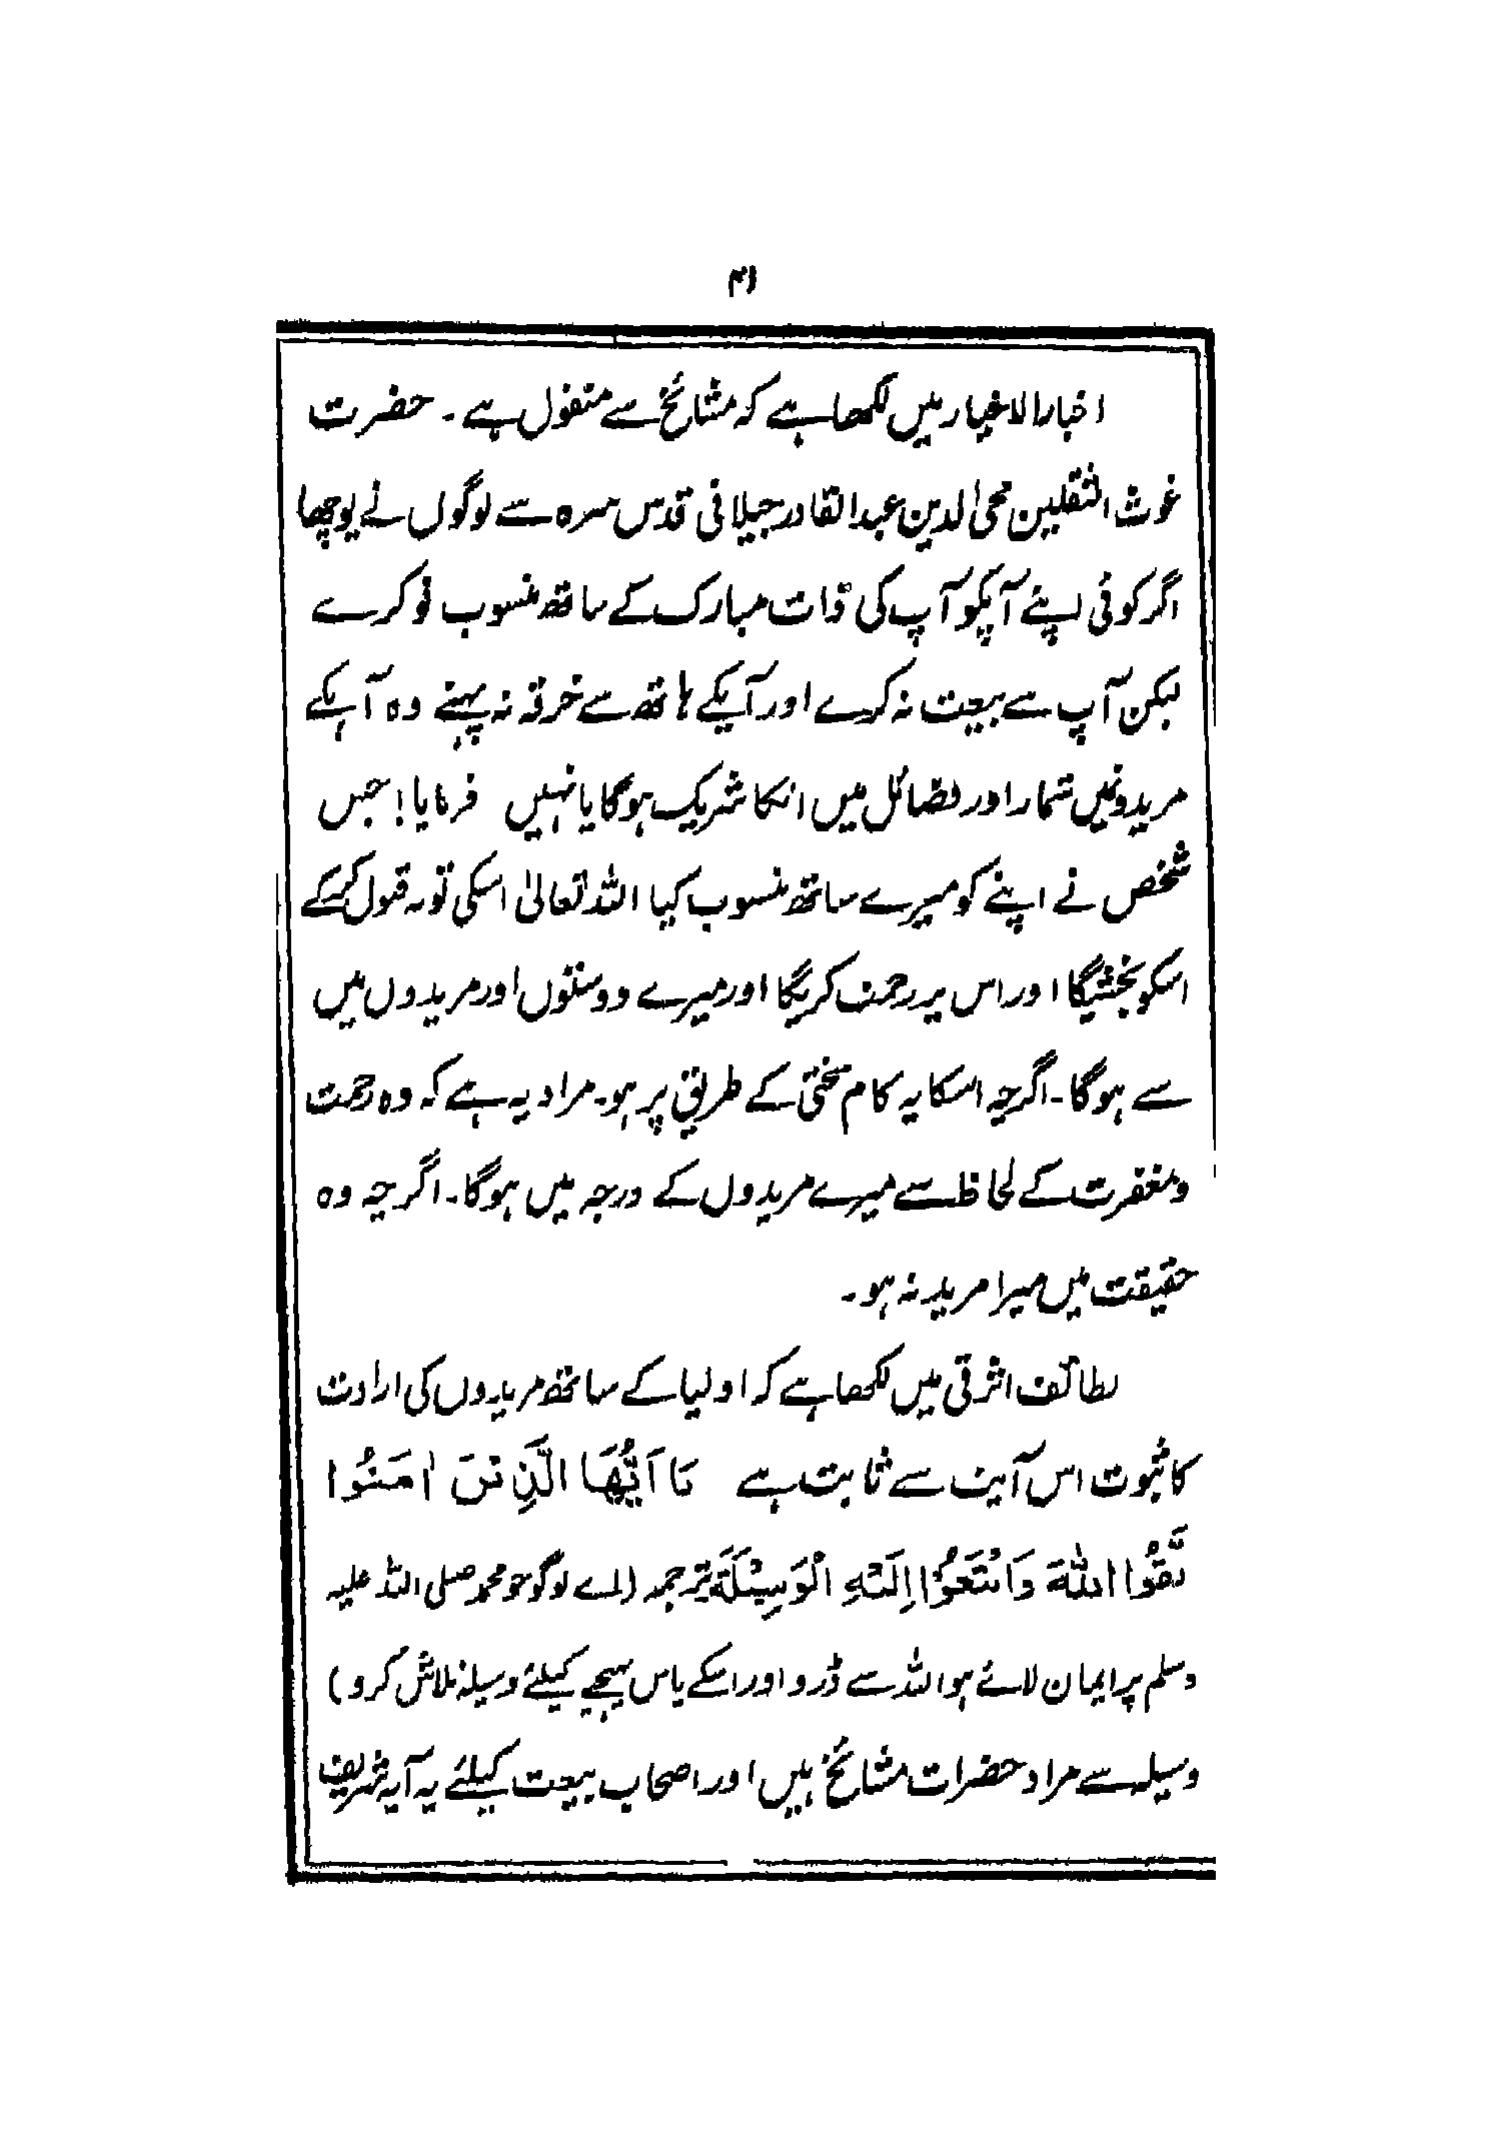 ۴۱
اخبارالاخیار میں لکھا ہے کہ مشائخ سے منقول ہے ۔ حضرت
غوث الثقلین محی الدین عبدالقادر جیلانی قدس سرہ سے لوگوں نے پوچھا
اگر کوئی اپنے آپکو آپ کی ذات مبارک کے ساتھ منسوب تو کرے
لیکن آپ سے بیعت نہ کرے اور آپکے ہاتھ سے خرقہ نہ پہنے وہ آپکے
مریدونمیں شمار اور فضائل میں انکا شریک ہوگا یا نہیں فرمایا! جس
شخص نے اپنے کو میرے ساتھ منسوب کیا اللہ تعالیٰ اسکی توبہ قبول کرکے
اسکو بخشیگا اور اس پر رحمت کریگا اور میرے دوستوں اور مریدوں میں
سے ہوگا۔ اگرچہ اسکا یہ کام سختی کے طریق پر ہو۔ مراد یہ ہے کہ وہ رحمت
و مغفرت کے لحاظ سے میرے مریدوں کے درجہ میں ہوگا۔ اگرچہ وہ
حقیقت میں میرا مرید نہ ہو۔
لطائف اشرفی میں لکھا ہے کہ اولیا کے ساتھ مریدوں کی ارادت
کا ثبوت اس آیت سے ثابت ہے يَا اَيُّهَا الَّذِيْنَ اٰمَنُوا
تَّقُوا اللّٰهَ وَابْتَغُوْا اِلَيْهِ الْوَسِيْلَةَ ترجمہ (اے لوگو جو محمد صلی اللہ علیہ
وسلم پر ایمان لائے ہو اللہ سے ڈرو اور اسکے پاس پہنچنے کیلئے وسیلہ تلاش کرو)
وسیلہ سے مراد حضرات مشائخ ہیں اور اصحاب بیعت کیلئے یہ آیہ شریف